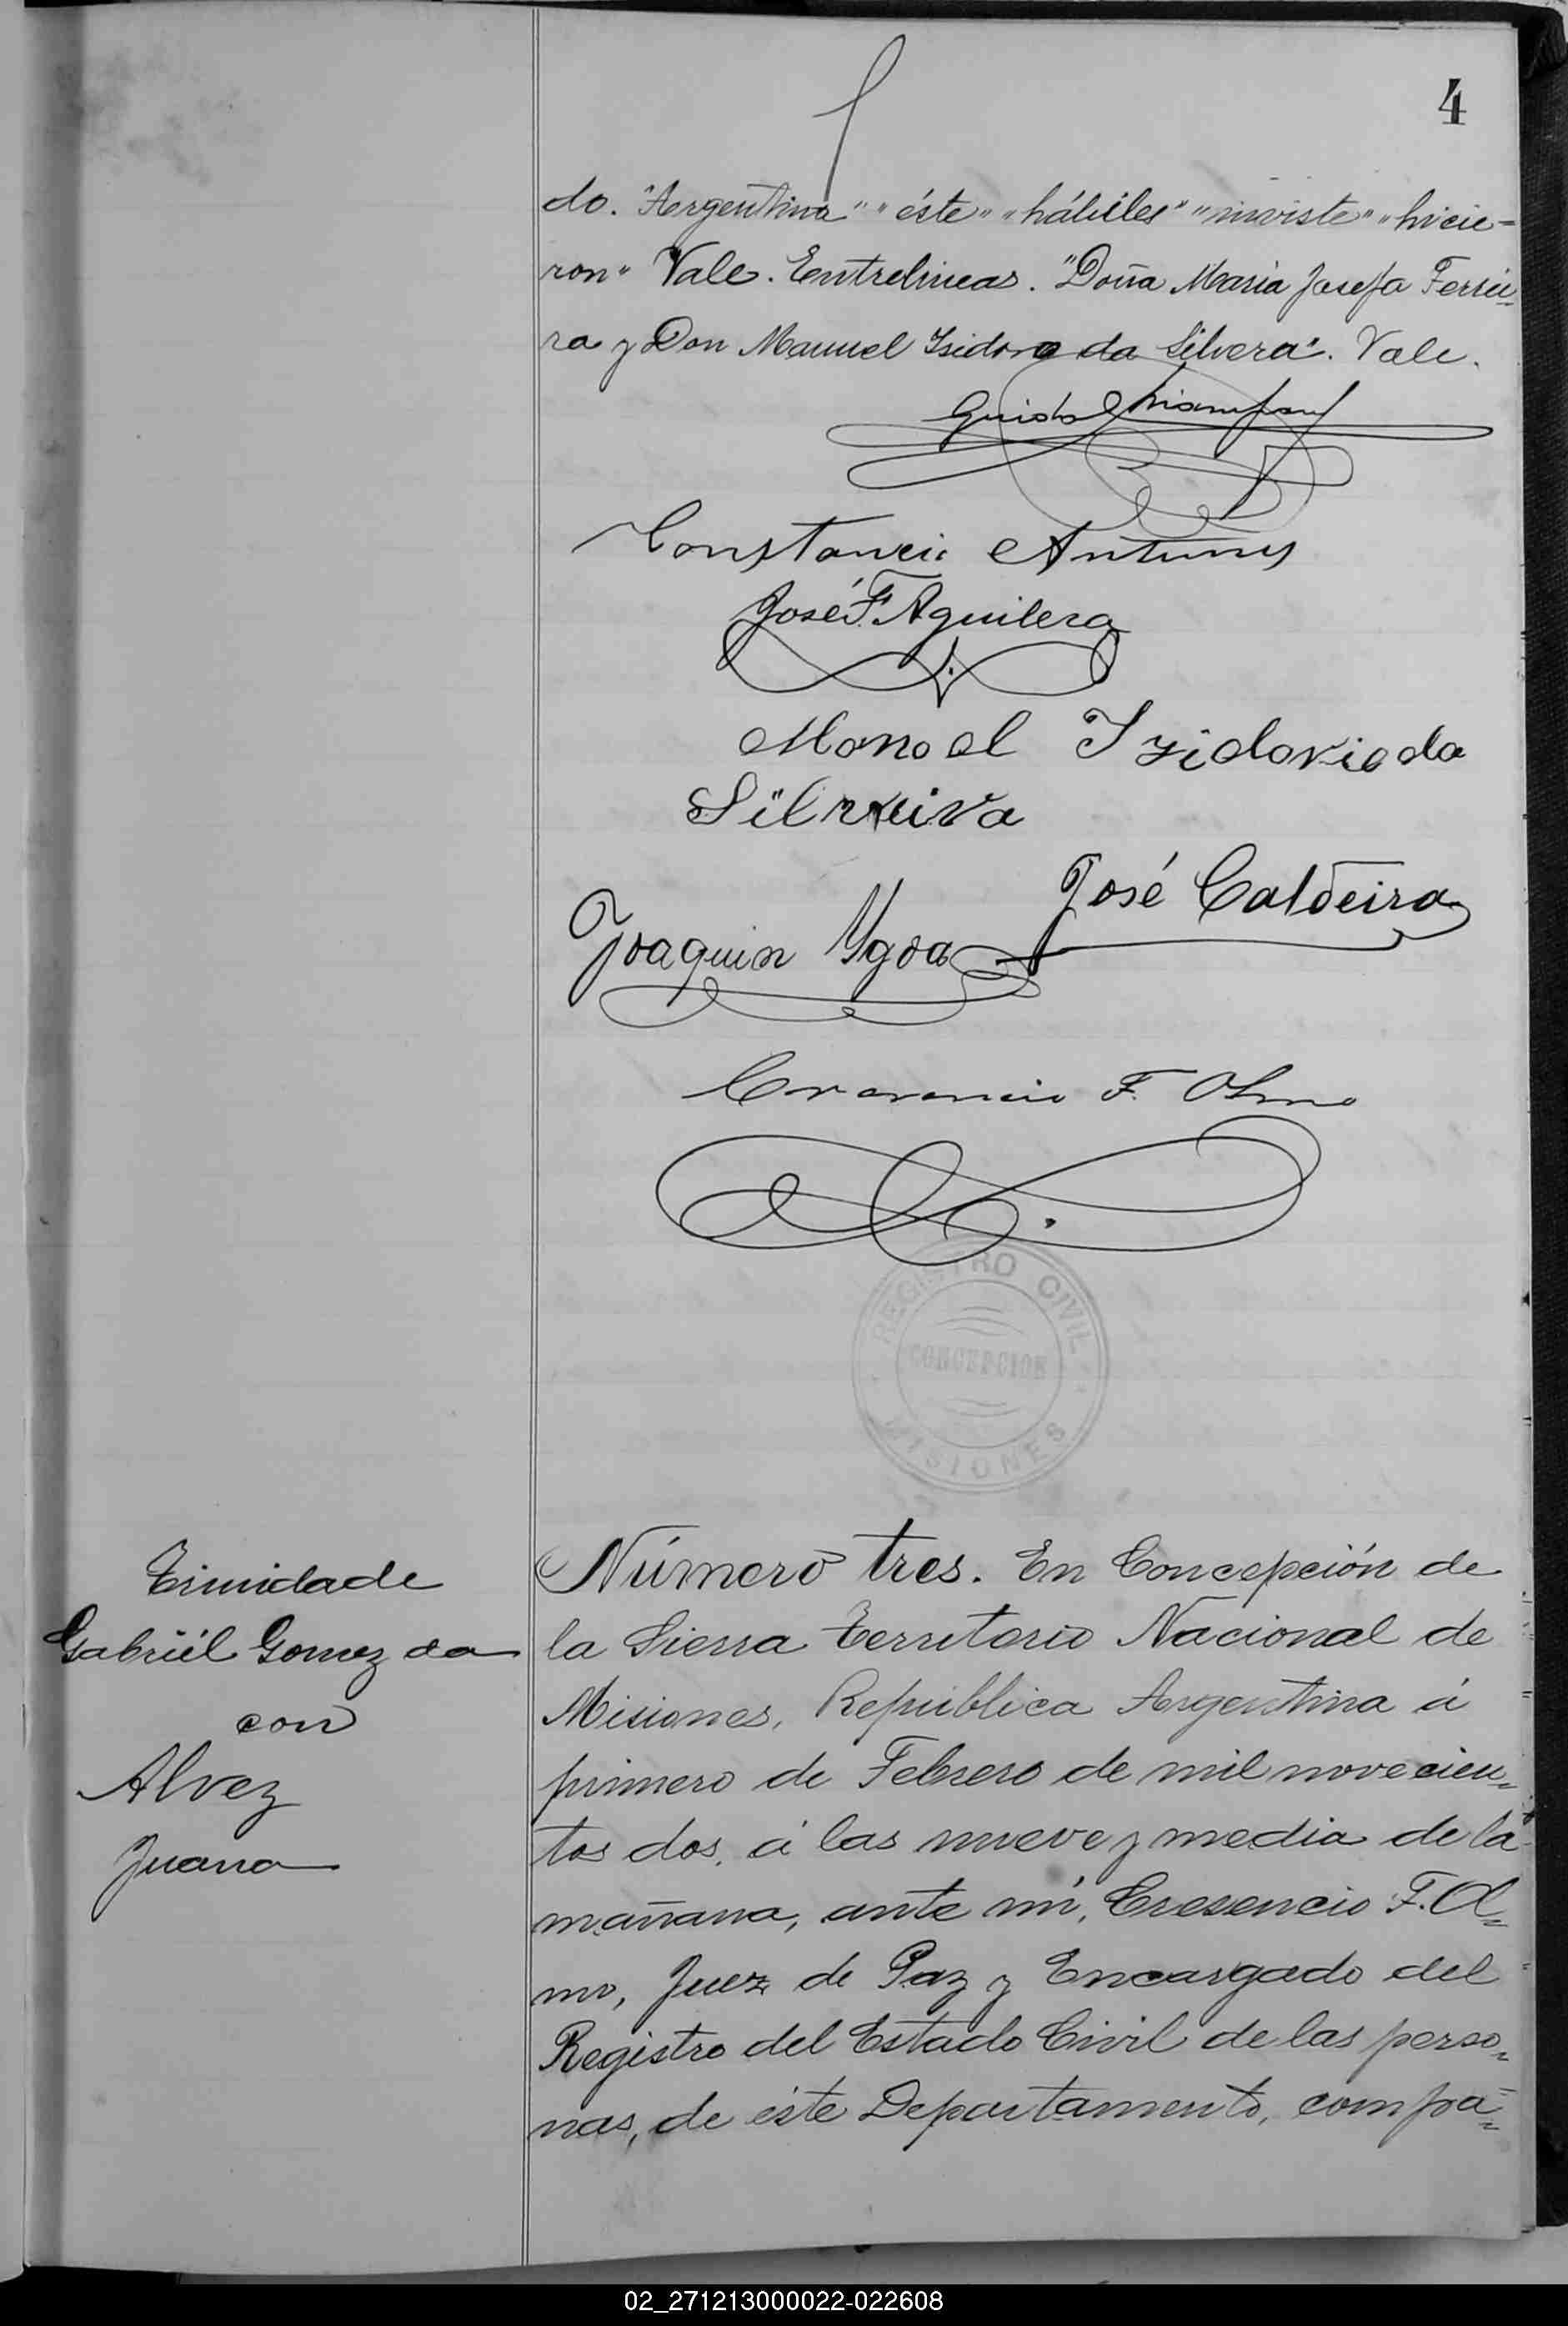 4
do. "Argentina" "éste" "hábiles" "inviste" "hicie=
ron" Vale. Entrelineas. "Doña Maria Josefa Ferrei=
ra y Don Manuel Isidoro da Silvera". Vale.
Guido
Constancio Antunes
José F. Aguilera
Manoel Izidorio da
Silveira
José Caldeira
Joaquin Ygoa
Cresencio F. Olmo
REGISTRO CIVIL
CONCEPCION
MISIONES
Trinidade
Gabriél Gomez da
con
Alvez
Juana
Número tres. En Concepción de
la Sierra Territorio Nacional de
Misiones, República Argentina á
primero de Febrero de mil novecien=
tos dos, á las nueve y media de la
mañana, ante mí, Cresencio F. Ol=
mo, Juez de Paz y Encargado del
Registro del Estado Civil de las perso=
nas, de éste Departamento, compa=
02_271213000022-022608